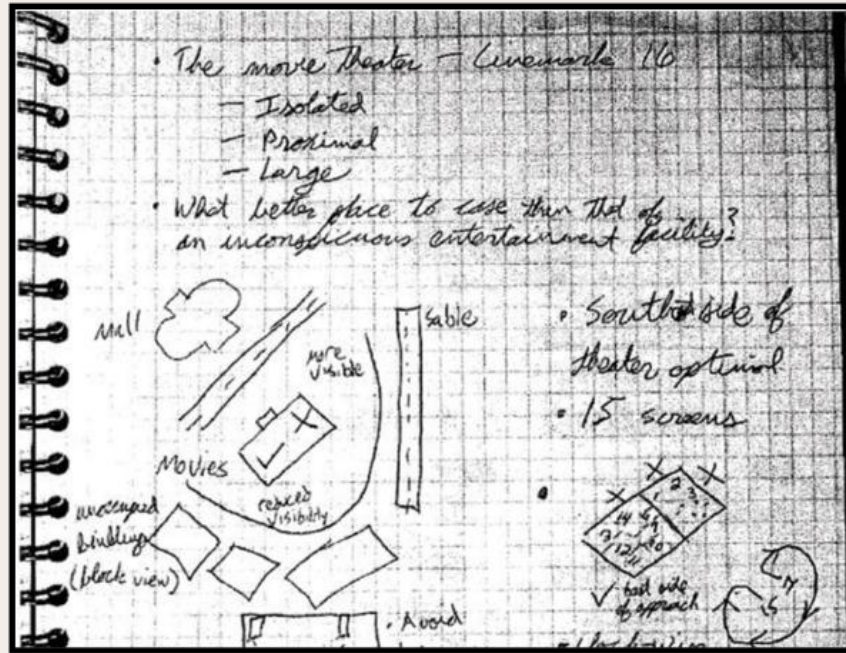 • The movie theater – Cinemark 16
– Isolated
– Proximal
– Large
• What better place to case than that of
an inconspicuous entertainment facility?
Mall
Sable
more
visible
Movies
reduced
visibility
unoccupied
buildings
(block view)
• Avoid
• South side of
theater optimal
• 15 screens
X X
X
2
3
14
12
11
10
✓ best side
of approach
N
S